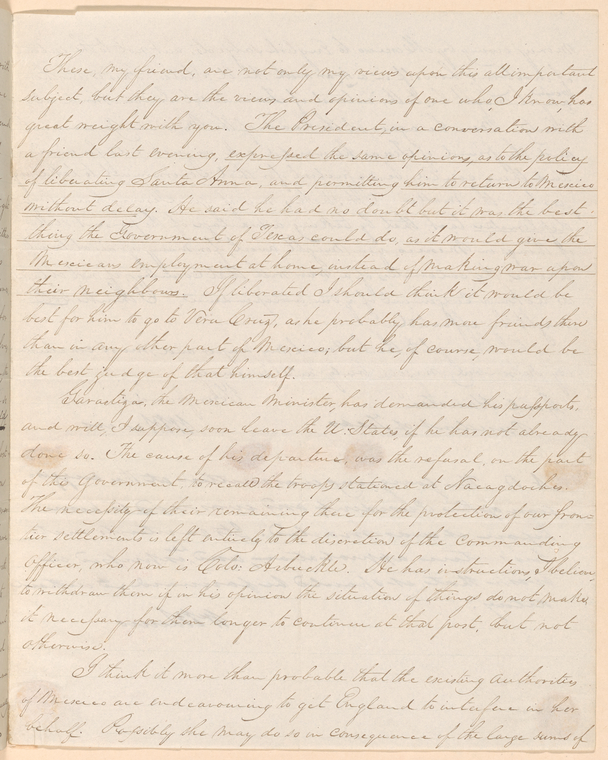 These, my friend, are not only my views upon this all important
subject, but they are the views and opinions of one who, I know, has
great weight with you. The President, in a conversation with
a friend last evening, expressed the same opinions, as to the policy
of liberating Santa Anna, and permitting him to return to Mexico
without delay. He said he had no doubt but it was the best
thing the Government of Texas could do, as it would give the
Mexicans employment at home, instead of making war upon
their neighbours. If liberated I should think it would be
best for him to go to Vera Cruz, as he probably has more friends there
than in any other part of Mexico; but he, of course, would be
the best judge of that himself.
Goractiza, the Mexican Minister, has demanded his passports,
and will, I suppose, soon leave the U. States if he has not already
done so. The cause of his departure was the refusal, on the part
of the Government, to recall the troops stationed at Nacogdoches.
The necessity of their remaining there for the protection of our fron-
tier settlements is left entirely to the discretion of the Commanding
Officer, who now is Colo: Arbuckle. He has instructions, I believe,
to withdraw them if in his opinion the situation of things do not make
it necessary for them longer to continue at that post, but not
otherwise.
I think it more than probable that the existing authorities
of Mexico are endeavouring to get England to interfere in her
behalf. Possibly she may do so in consequence of the large sums of